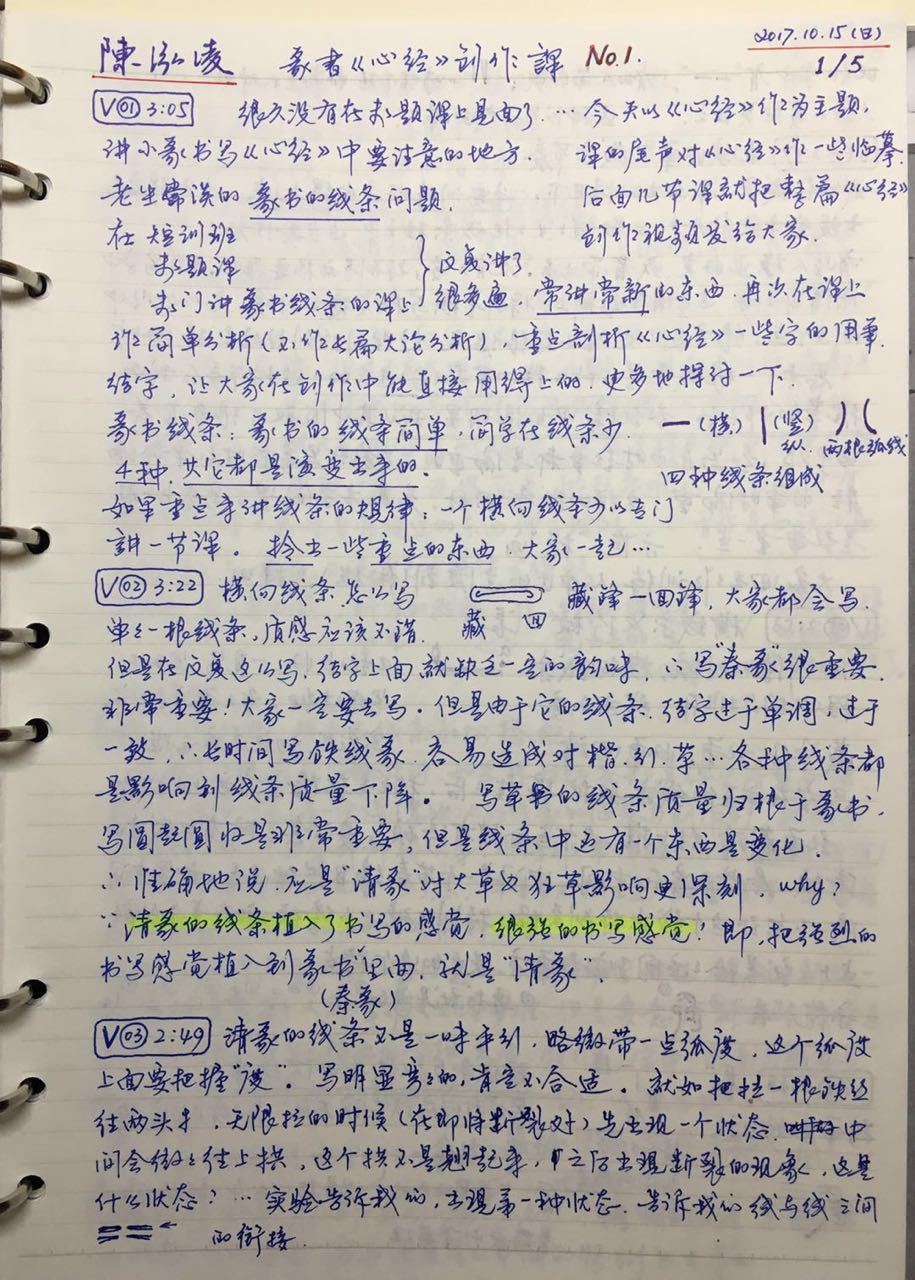 2017.10.15(日)
陳泓凌 篆书《心经》创作課 No.1. 1/5
V01 3:05 很久没有在专题课上见面了…今天以《心经》作为主题,
讲小篆书写《心经》中要注意的地方. 课的尾声对《心经》作一些临摹.
老生常谈的 篆书的线条问题. 后面几节课就把整篇《心经》
在短训班 创作视频发给大家.
专题课 反复讲了
专门讲篆书线条的课上 很多遍. 常讲常新的东西. 再次在课上
作简单分析(不作长篇大论分析), 重点剖析《心经》一些字的用筆
结字, 让大家在创作中能直接用得上的. 更多地探讨一下.
篆书线条: 篆书的线条简单, 简单在线条少. 一(横) 丨(竖) )(
纵. 两根弧线
4种, 其它都是演变出来的. 四种线条组成
如果重点来讲线条的规律, 一个横向线条可以专门
讲一节课. 拎出一些重点的东西, 大家一起…
V02 3:22 横向线条怎么写 藏锋一回锋, 大家都会写.
藏 回
单纯一根线条, 质感应该不错.
但是在反复这么写, 结字上面就缺乏一定的韵味, ∴写"秦篆"很重要.
非常重要! 大家一定要去写. 但是由于它的线条. 结字过于单调, 过于
一致, ∴长时间写铁线篆. 容易造成对楷.行.草…各种线条都
是影响到线条质量下降. 写草书的线条质量归根于篆书.
写圆起圆收是非常重要, 但是线条中还有一个东西是变化.
∴准确地说, 应是"清篆"对大草及狂草影响更深刻. why?
∵清篆的线条植入了书写的感觉, 很强的书写感觉! 即, 把强烈的
书写感觉植入到篆书里面, 就是"清篆".
(秦篆)
V03 2:49 清篆的线条不是一味平行, 略微带一点弧度, 这个弧度
上面要把握"度". 写明显弯的, 肯定不合适. 就如把拉一根铁丝
往两头扌, 无限拉的时候(在即将断裂好)先出现一个状态. 中
间会微微往上拱, 这个拱不是翘起来, 中之后出现断裂的现象, 这是
什么状态? …实验告诉我们, 出现第一种状态. 告诉我们线与线之间
的衔接.